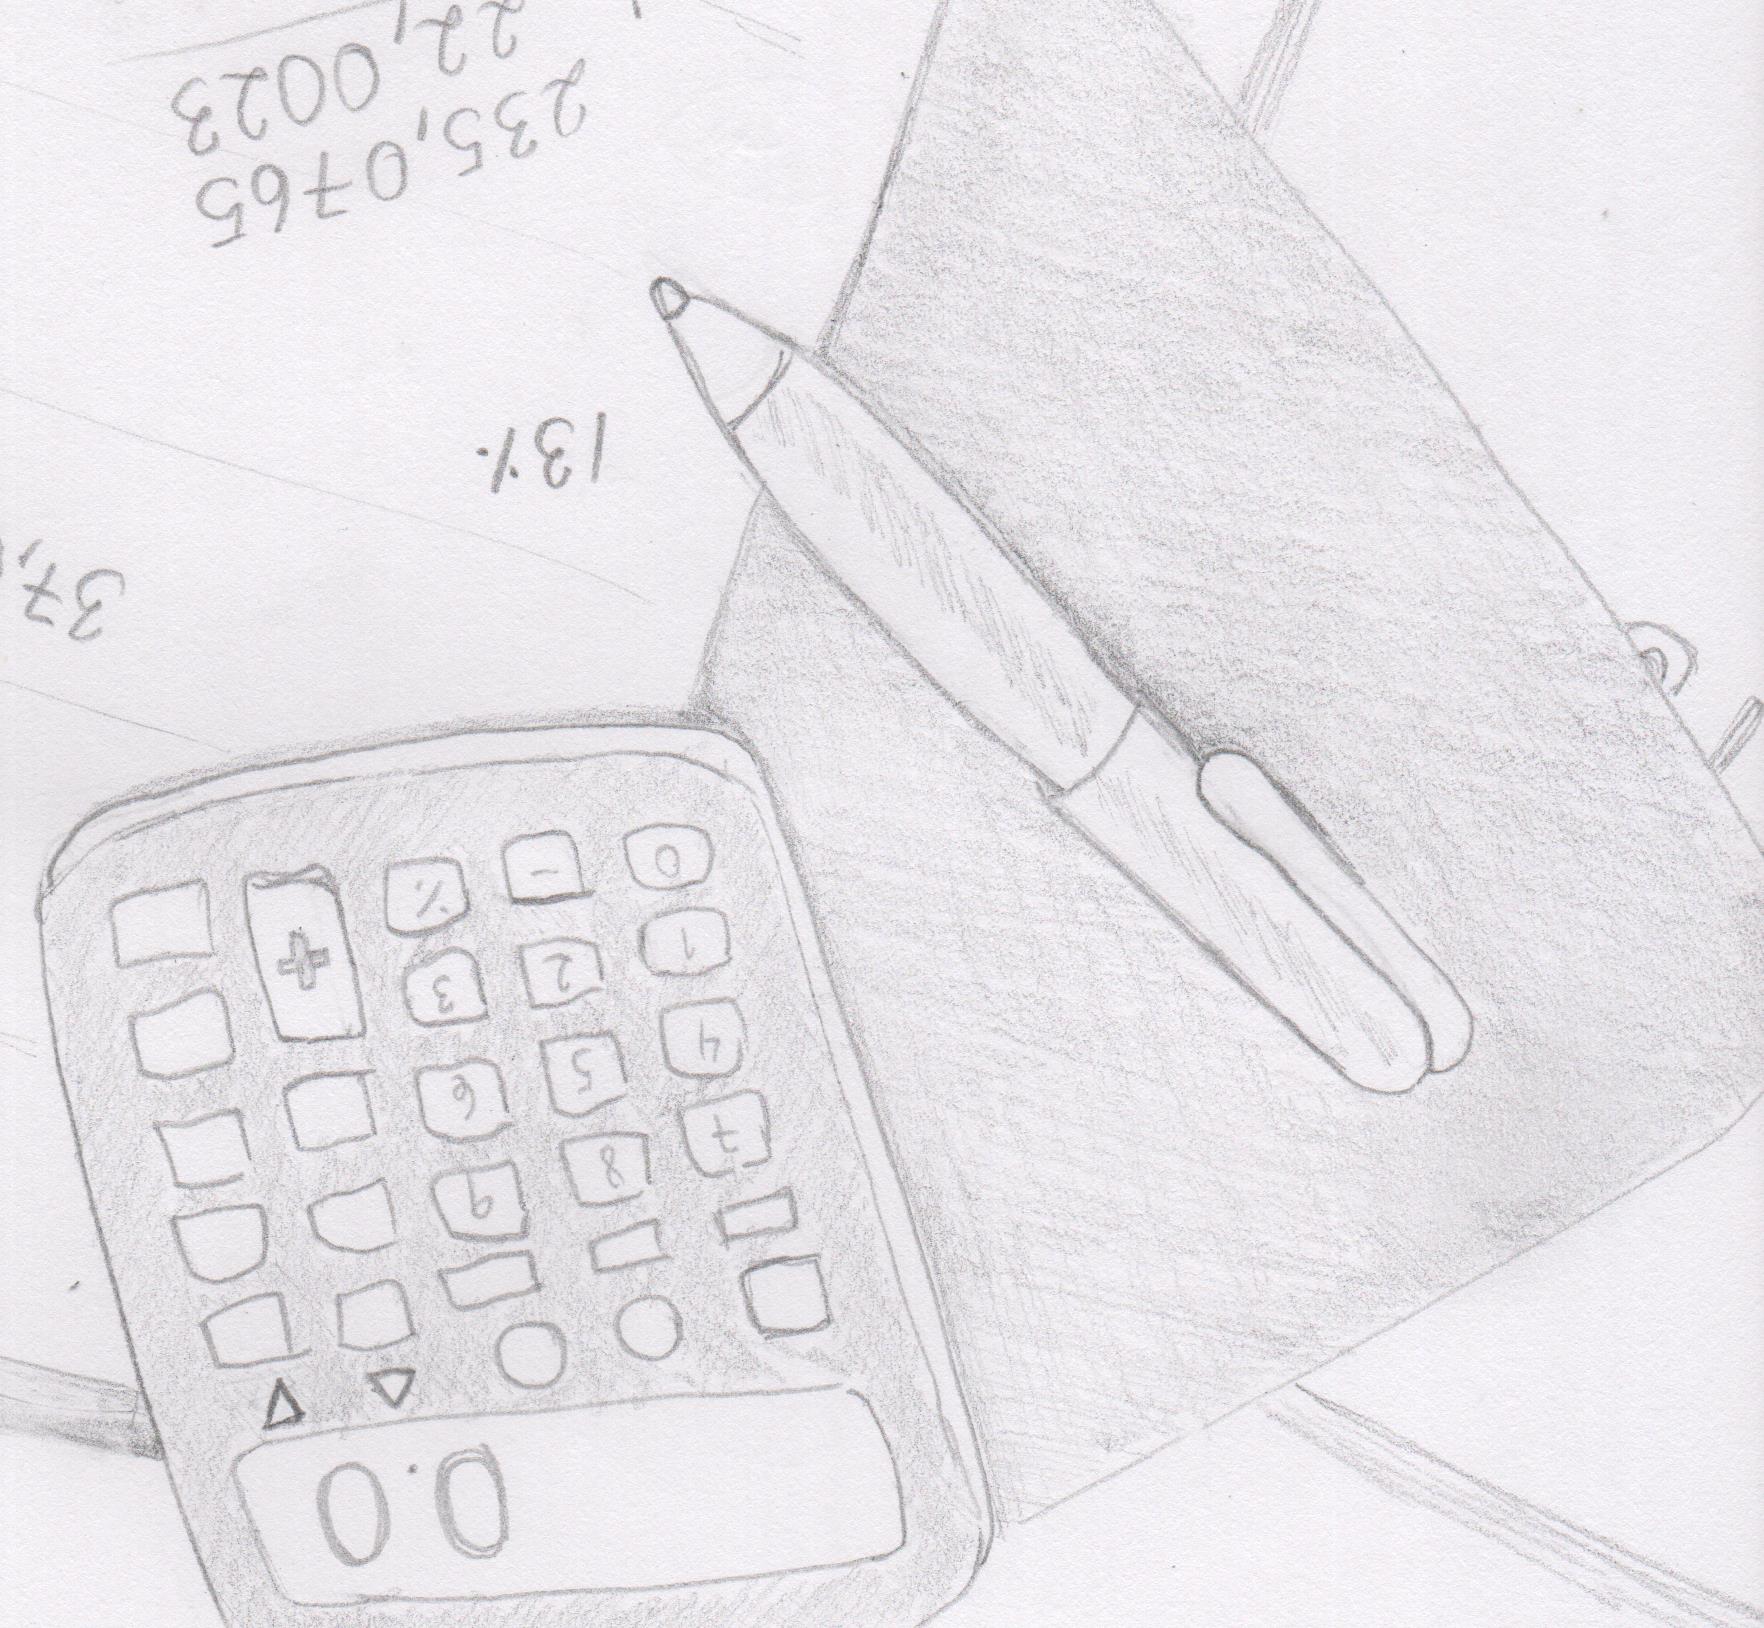 0.0
7 8 9
4 5 6
1 2 3 +
0 - %
37,
13%
235,0765
22,0023